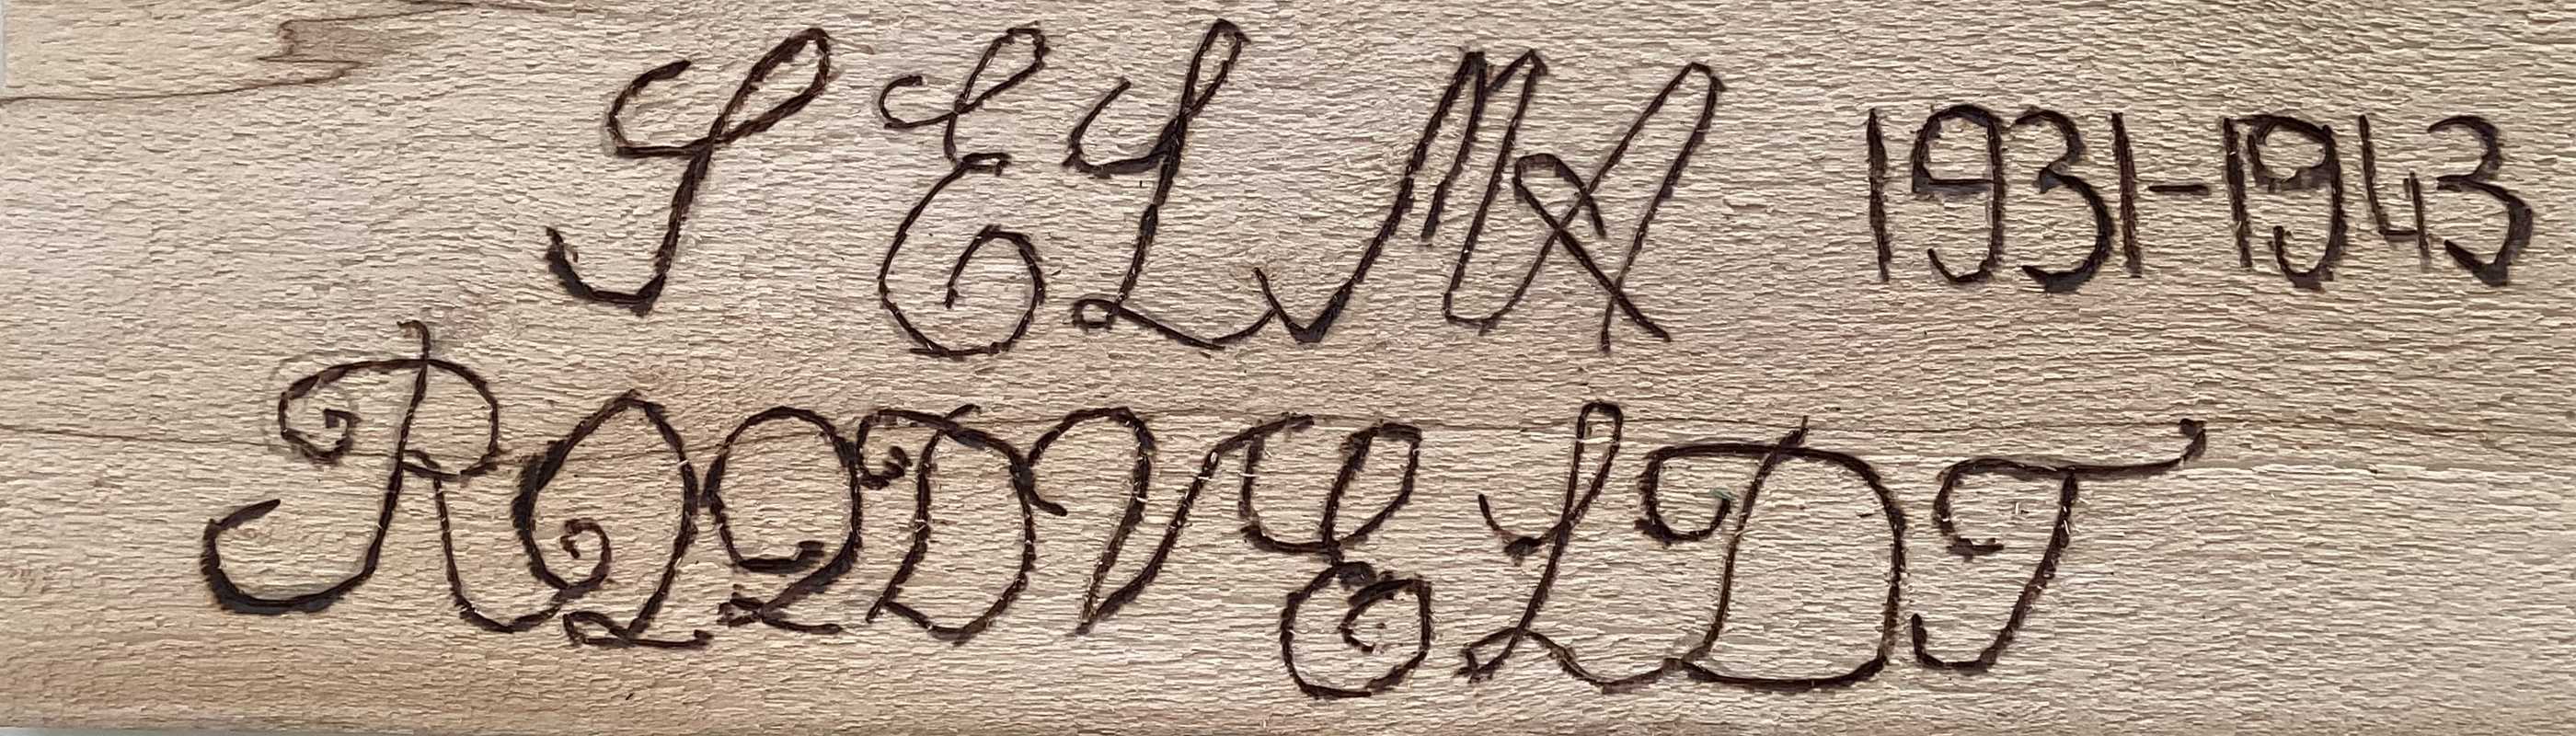 SELMA 1931-1943
ROODVELDT